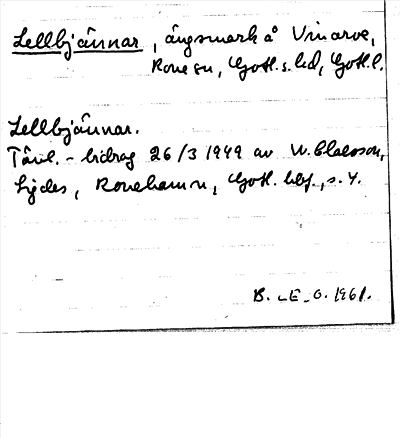 Lellbjännar, ängsmark å Vinarve,
Rone sn, Gotl. s. hd, Gotl. l.
Lellbjännar.
Tävl.-bidrag 26/3 1949 av W. Claesson,
Hjdes, Ronehamn, Gotl. hbf., s. 4.
B. LE_O. 1961.